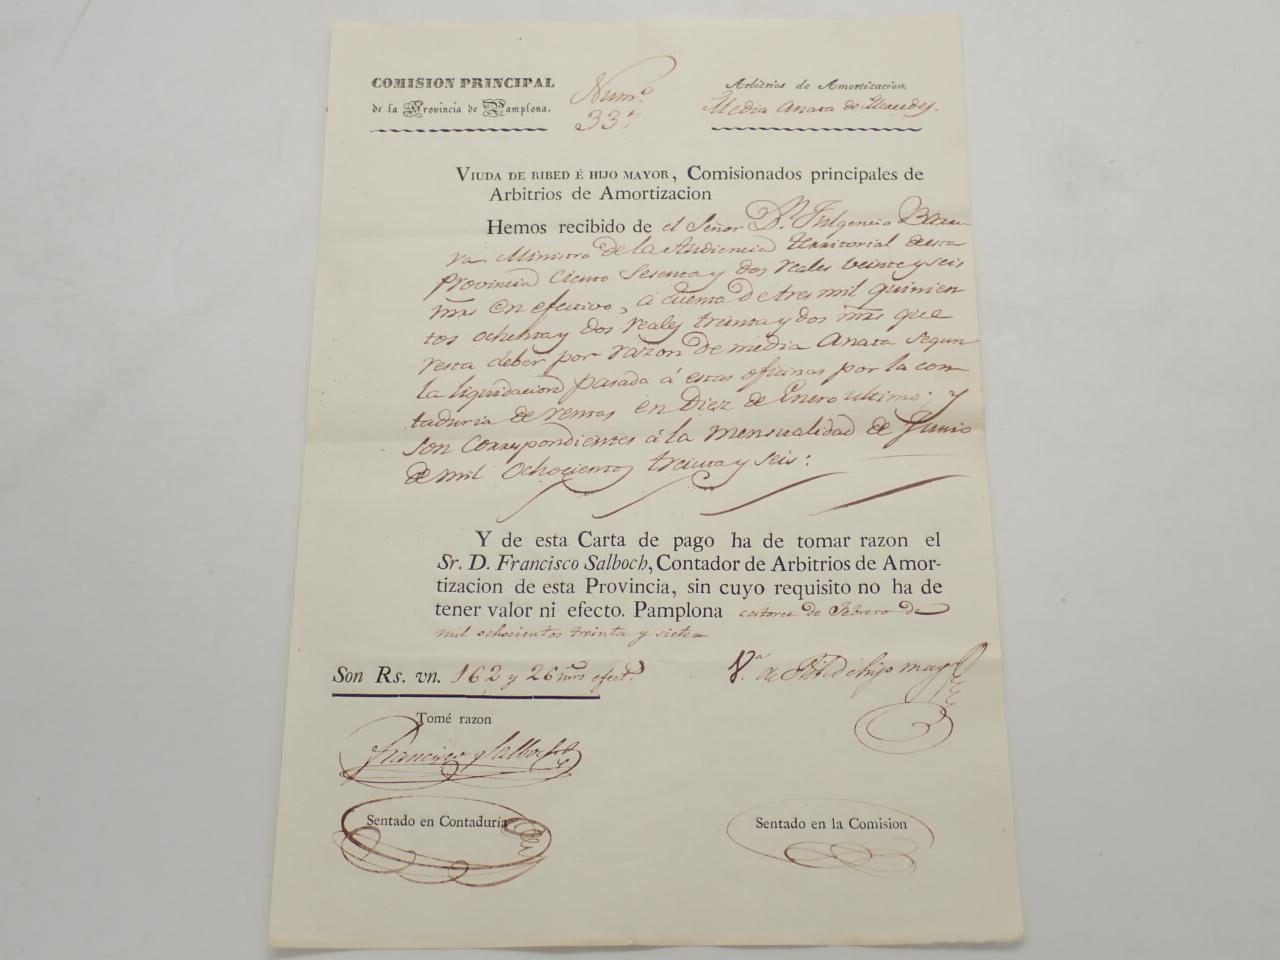 COMISION PRINCIPAL
de la Provincia de Pamplona.
Num.º
337
Arbitrios de Amortizacion.
Media Anata de
VIUDA DE RIBED É HIJO MAYOR, Comisionados principales de
Arbitrios de Amortizacion
Hemos recibido de el Señor D.n Fulgencio Barre
ra Ministro de la Audiencia territorial de esta
provincia ciento Sesenta y dos reales veinte y seis
mrs en efectivo, á cuenta de tres mil quinien
tos ochenta y dos reales treinta y dos mrs que
resta deber por razon de media Anata segun
la liquidacion pasada á estas oficinas por la con
taduria de rentas en Diez de Enero ultimo; y
son correspondientes á la mensualidad de Junio
de mil ochocientos treinta y seis:
Y de esta Carta de pago ha de tomar razon el
Sr. D. Francisco Salboch, Contador de Arbitrios de Amor-
tizacion de esta Provincia, sin cuyo requisito no ha de
tener valor ni efecto. Pamplona catorce de Febrero de
mil ochocientos treinta y siete=
Son Rs. vn. 162 y 26 mrs efect.s
V.a de Rib.d é hijo mayor
Tomé razon
Francisco Salboch
Sentado en Contaduria
Sentado en la Comision